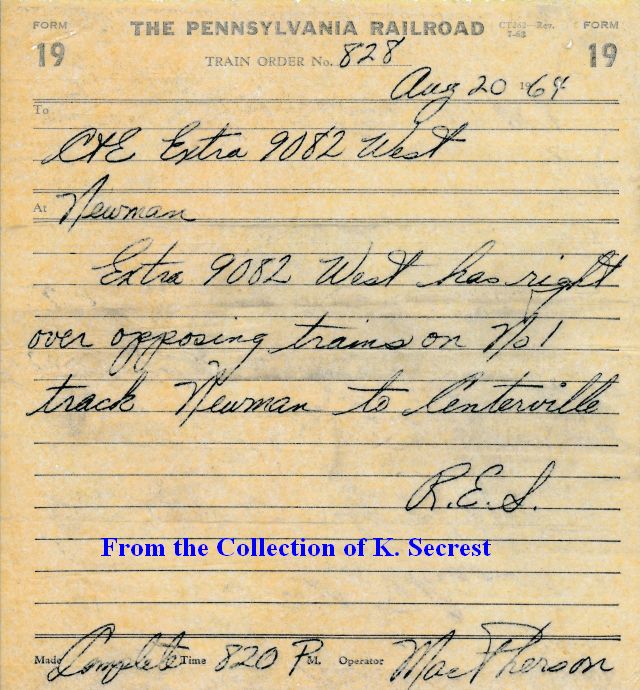 FORM 19 THE PENNSYLVANIA RAILROAD CT262—Rev. 7-63 FORM 19
TRAIN ORDER No. 828
Aug 20 1964
To
C&E Extra 9082 West
At Newman
Extra 9082 West has right
over opposing trains on No 1
track Newman to Centerville
R.E.S.
From the Collection of K. Secrest
Made Complete Time 820 P M. Operator MacPherson